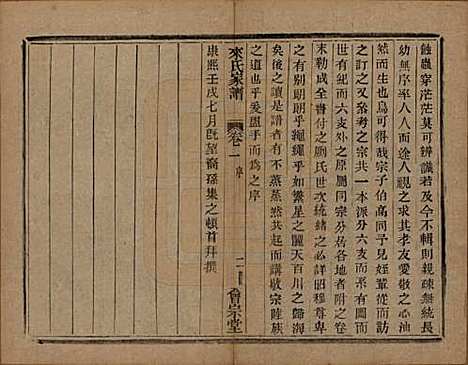 蝕蟲穿茫茫莫可辨識若及今不輯則親疎無統長
幼無序率人人而途人視之求其孝友愛敬之心油
然而生也烏可得哉宗子伯高同予兒姪輩從而訪
之訂之又叅考之宗共一本派分六支而六支之前
世有紀而六支外之原鵬同宗分居各地者附之卷
末勒成全書付之剞氏世次統緒之必詳昭穆尊卑
之有別朗朗乎繩繩乎如繁星之麗天百川之歸海
矣後之讀是譜者有不蒸蒸然而講敬宗睦族
之道也乎爰盥手而為之序
康熙壬戌七月既望裔孫集之頓首拜撰
來氏家譜
卷一 序
二
會宗堂